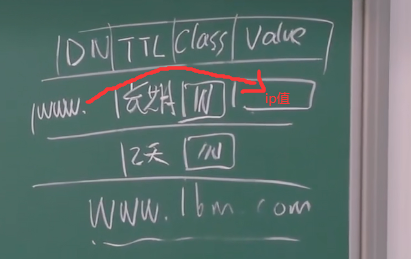 DN TTL Class Value
www. IN ip值
2天 IN
www.ibm.com